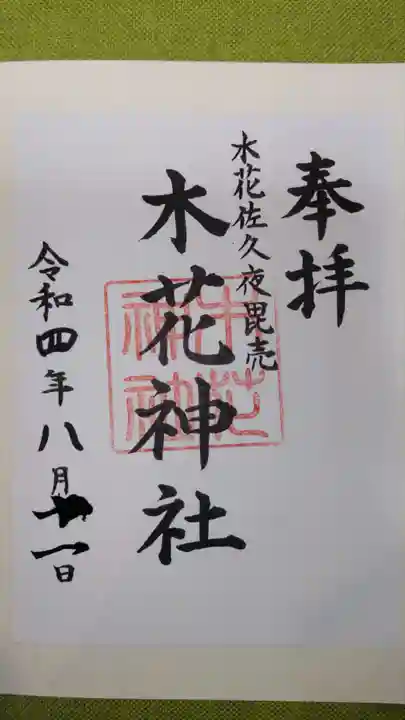 奉拝
木花佐久夜毘売
木花神社
木花
神社
令和四年八月十一日